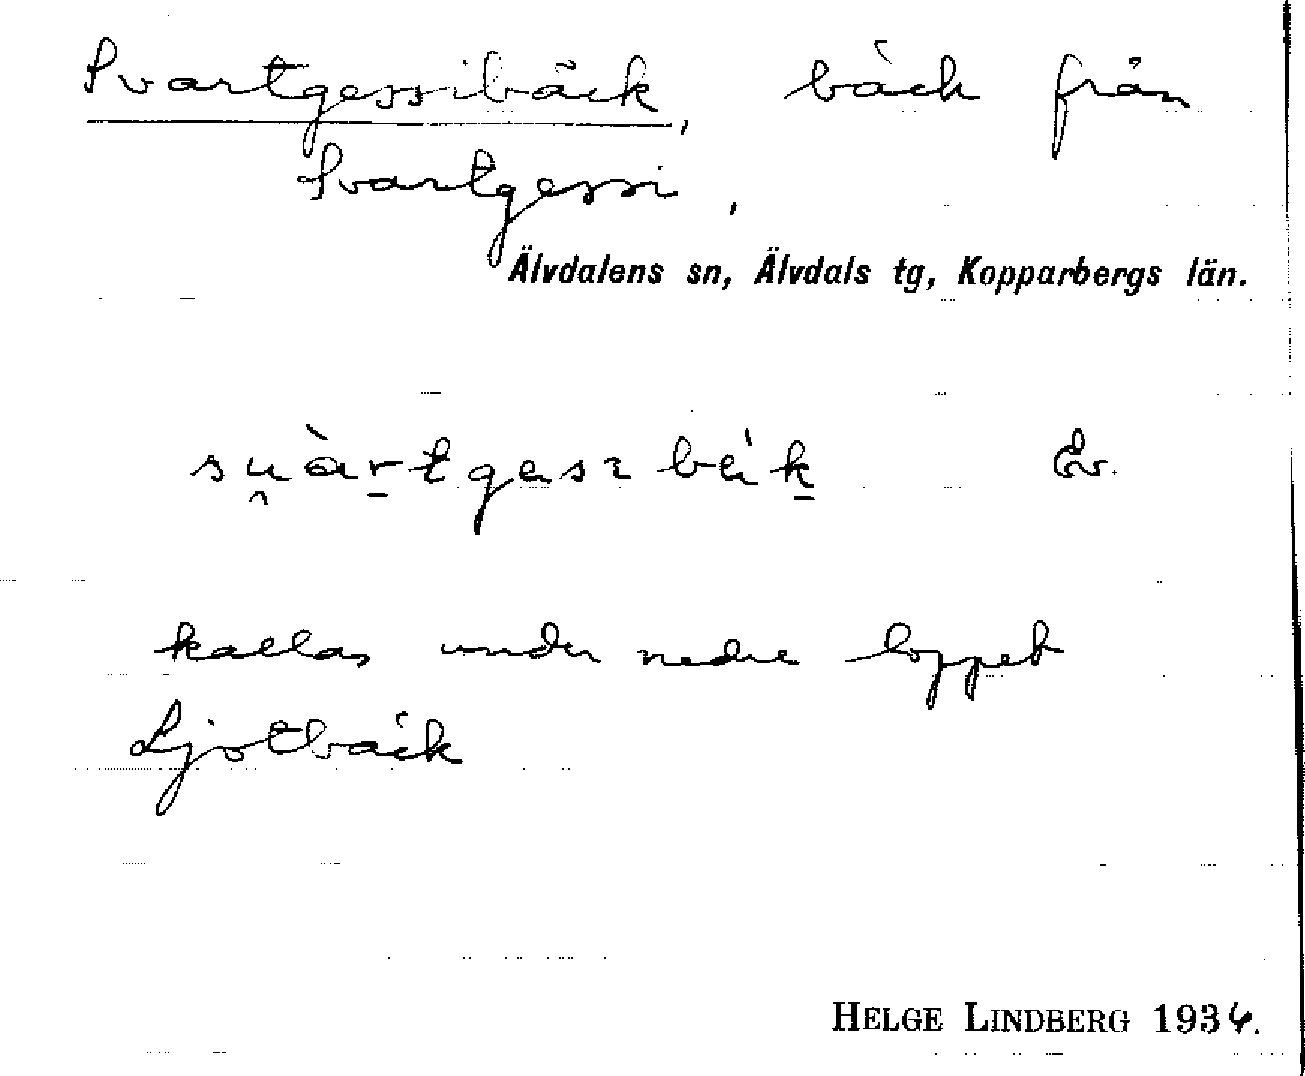 Svartgessibäck, bäck från
Svartgessi,
Älvdalens sn, Älvdals tg, Kopparbergs län.
Äv.
kallas under nedre loppet
Ljotbäck
HELGE LINDBERG 1934.